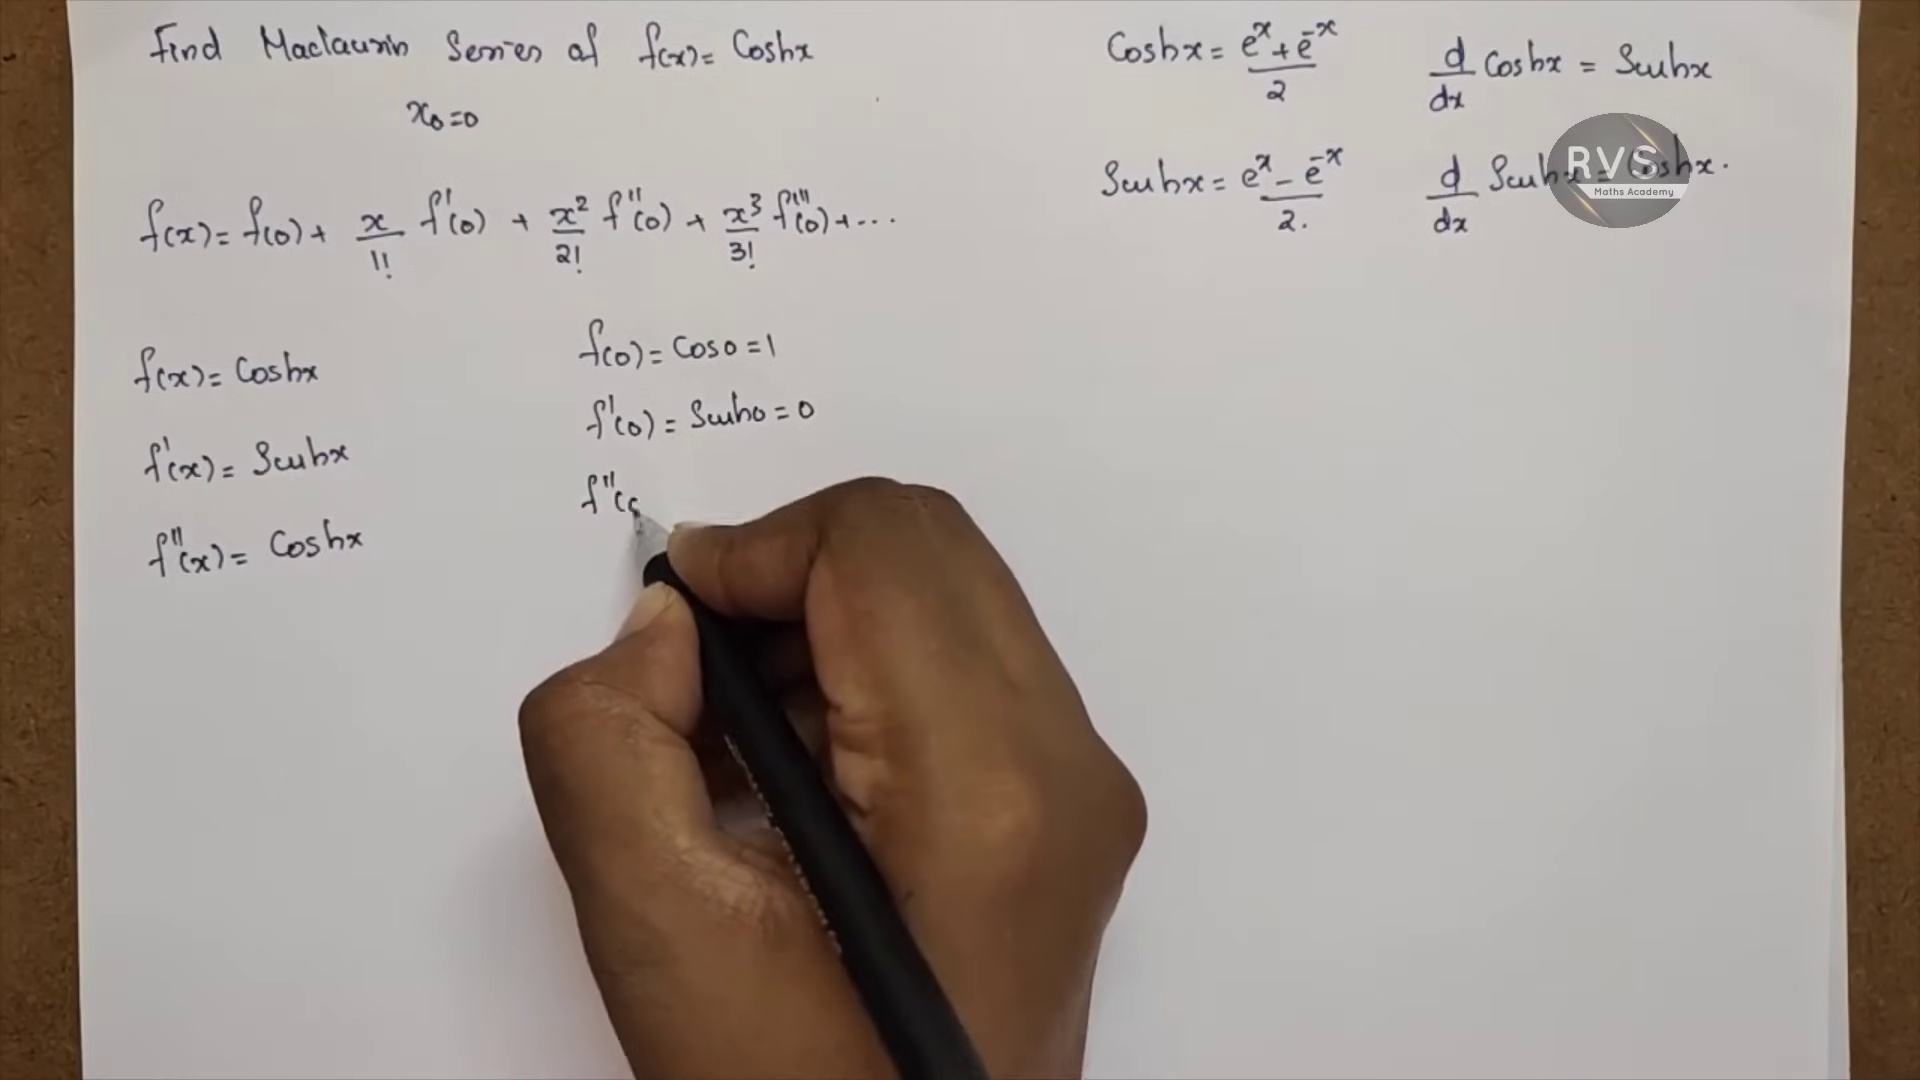 Find Maclaurin Series of f(x) = Coshx
x₀=0
f(x) = f(0) + x/1! f'(0) + x²/2! f''(0) + x³/3! f'''(0) + ...
f(x) = Coshx
f'(x) = Sinhx
f''(x) = Coshx
f(0) = Cos0 = 1
f'(0) = Sinh0 = 0
f''(
Coshx = e^x + e^-x / 2
d/dx Coshx = Sinhx
Sinhx = e^x - e^-x / 2.
d/dx Sinhx = Coshx.
RVS
Maths Academy